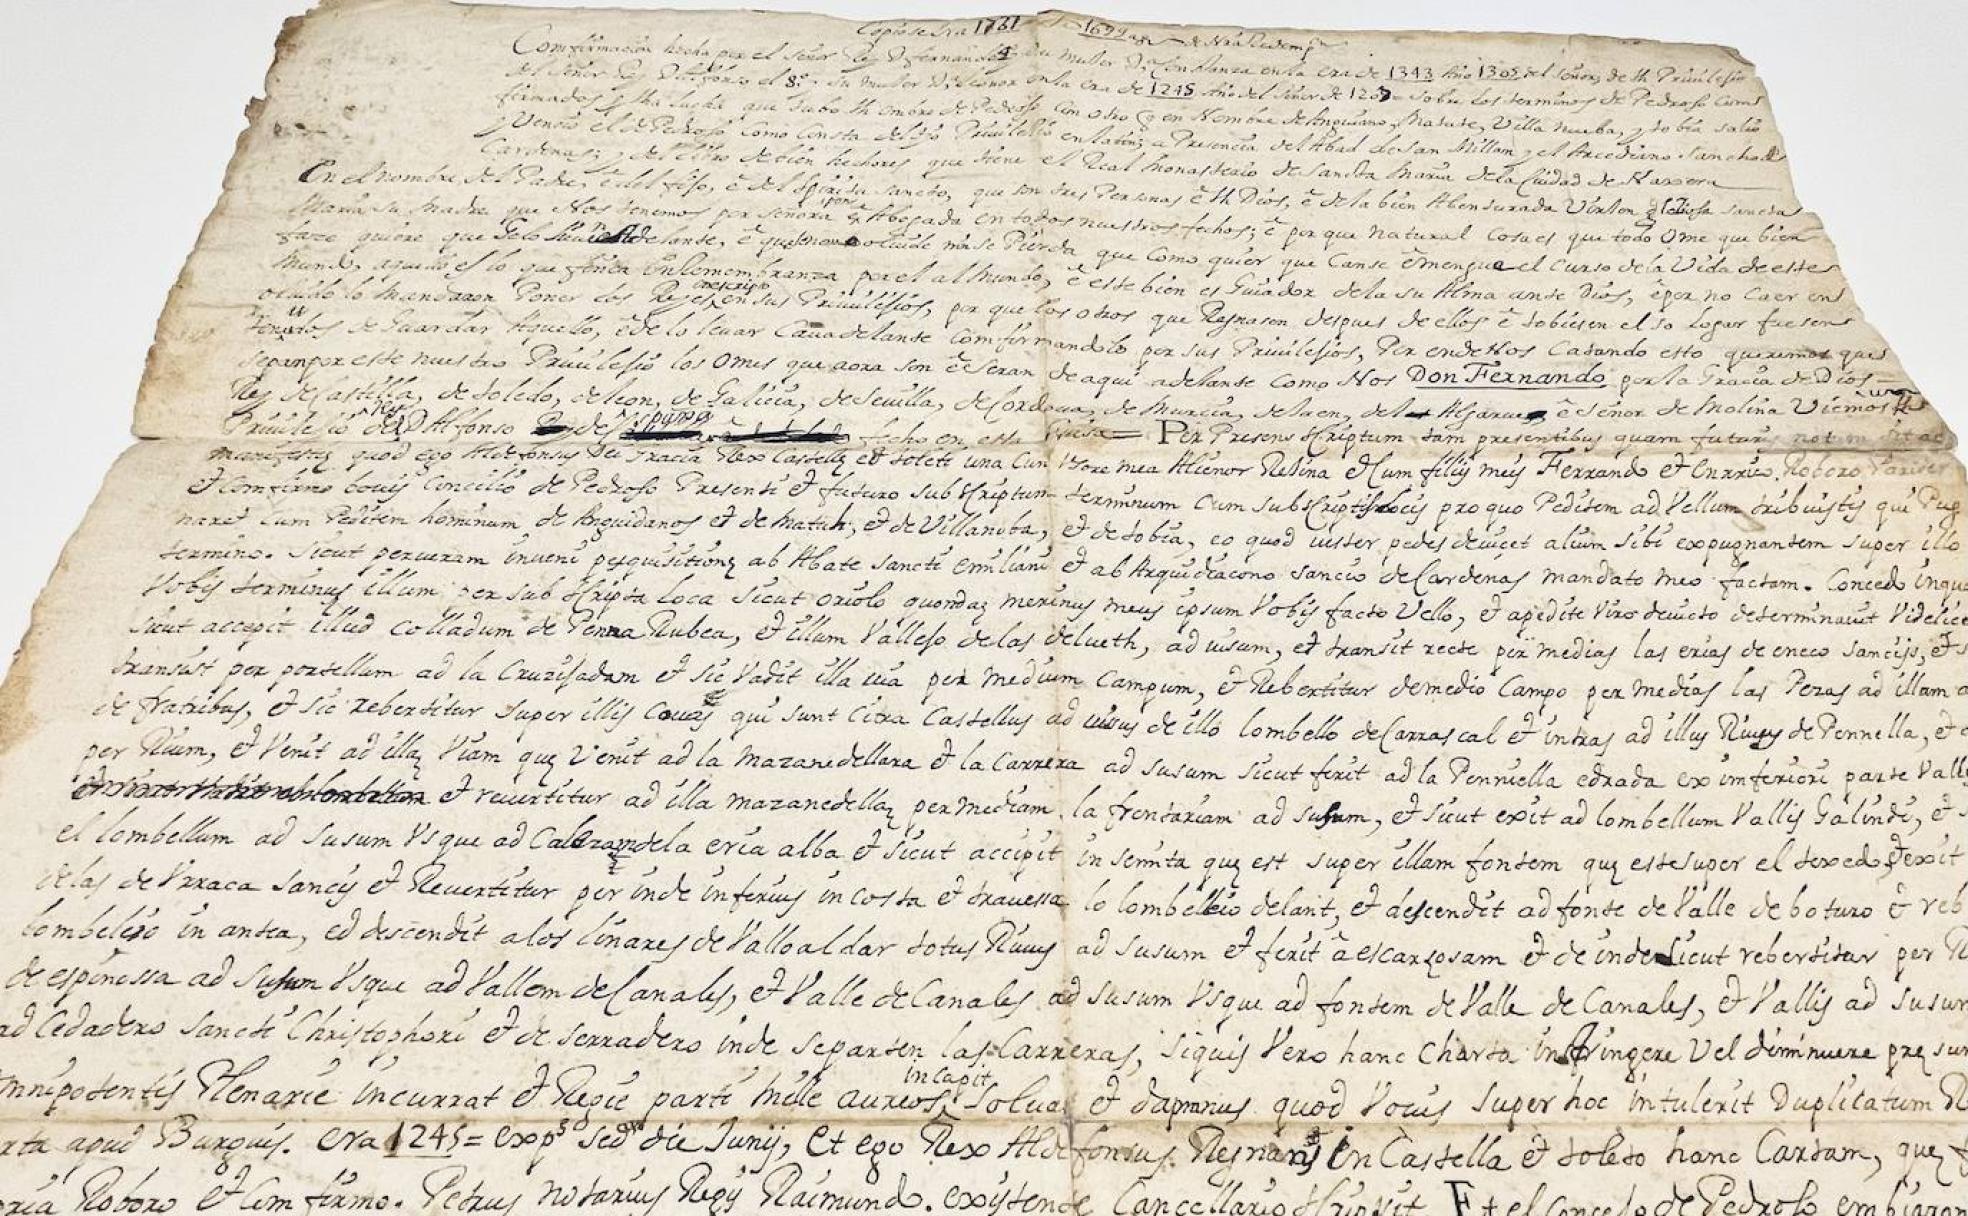 Copiose Era 1761
Confirmacion hecha por el señor Rey D. fernando 4 su muller D.ª Constanza en la era de 1343 Año 1305 del señor, de Un Priuilejio
del Señor Rey D. Alfonso el 8.º su muller D.ª Leonor en la era de 1245 Año del Señor de 1207 = sobre los terminos de Pedroso
firmados y Una lucha que tubo Un ombre de Pedroso con otro en Nombre de Anguiano, Matute, Villa nueba, y tobia salio
y Vencio el de Pedroso como consta del dho Priuilesio en latin; a Presencia del Abad de San Millan y el Arcediano Sancho de
Cardenas; y del libro de bien hechores que tiene el Real monasterio de Santa Maria de la Ciudad de Naxera
En el nombre del Padre, è del fijo, è del Spiritu sancto, que son tres Personas è Un Dios, è de la bien Abenturada Virjen Gloriosa sancta
Maria su madre que Nos tenemos por señora e Abogada en todos nuestros fechos; è por que natural Cosa es que todo ome que bien
face quiere que se lo lieuen adelante, è que no se oluide ni se Pierda que como quier que Canse è mengue el Curso de la Vida de este
mundo, aquello es lo que finca en remembranza por el al mundo, è este bien es Guiador de la su Alma ante Dios, è por no Caer en
oluido lo mandaron Poner los Reyes en sus Priuilesios, por que los otros que Regnasen despues de ellos è tobiesen el so logar fuesen
tenudos de Guardar Aquello, è de lo leuar Caua delante Comfirmandolo por sus Priuilesios, Por ende Nos Catando esto queremos que
sepan por este nuestro Priuilesio los Omes que aora son è seran de aqui adelante como Nos Don Fernando por la Gracia de Dios
Rey de Castilla, de Toledo, de leon, de Galicia, de Seuilla, de Cordoua, de Murcia, de Jaen, del Algarue, è señor de Molina Viemos un
Priuilesio del Rey D. Alfonso fecho en esta Guisa = Per Presens Scriptum tam presentibus quam futuris notum sit ac
manifestum quod ego Aldefonsus Dei Gracia Rex Castelle et toleti una Cum Vxore mea Alienor Regina et Cum filijs meis Ferrando et Enrrico, Roboro Pariter
et Comfirmo bouis Concilio de Pedroso Presenti et futuro subscriptum terminum cum subscriptis locis pro quo Peditem ad Vellum tribuistis qui Pug
naret cum Peditem hominum de Anguidanos et de Matuth, et de Villanoba, et de tobia, eo quod uester pedes deuicet alium sibi expugnantem super illo
termino. Sicut per ueram inueni pesquisitionem ab Abate sancti Emiliani et ab Arquidiacono sancio de Cardenas mandato meo factam. Concedo inqua
Vobis terminus illum per subscripta loca sicut oriolo quondam merinus meus ipsum Vobis facto Vello, et a pedite Viro deuicto determinauit Videlice
sicut accepit illud colladum de Penna Rubea, et illum Vallejo de las delueth, ad iusum, et transit recte per medias las erias de eneco sancijs, et s
transist per portellum ad la Cruzijadam et sic Vadit illa uia per medium Campum, et Rebertitur de medio Campo per medias las Pezas ad illam
de fratribus, et sic rebertitur super illis Couis qui sunt Cixa Castellus ad uisus de illo lombello de Carrascal et intras ad illus Riuus de Pennella, et
per Riuum, et Venit ad illam Viam que Venit ad la mazanedillara et la Carrera ad susum sicut ferit ad la Penniella edrada ex imferiori parte Vally
et reuertitur ad illa mazanedellaz per mediam la frentariam ad susum, et sicut exit ad lombellum Vallis Galindi, et
el lombellum ad susum Usque ad dela eria alba et sicut accipit in semita que est super illam fontem que este super el texedo, et exit
de las de Vrraca sancij et Reuertitur per inde inferius in costa et trauessa lo lombellio delant, et descendit ad fonte de Valle de boturo et reb
lombelijo in antea, ed descendit a los linares de Valloaldar totus Riuus ad susum et ferit à escarzosam et de inde Sicut rebertitur per R
de espinossa ad susum Usque ad Vallem de Canales, et Valle de Canales ad susum Usque ad fontem de Valle de Canales, et Vallis ad susum
ad Cedadero sancti Christophori et de serradero inde separten las Carreras, Siquis Vero hanc Charta infringere Vel diminuere pre sum
mnipotentis Plenarie incurrat et Regie parti mille aureos, in Capit Soluat et dapnus quod Vouis super hoc intulerit Duplicatum R
rta apud Burguis. era 1245 = die Junij, et ego Rex Aldefonsus Regnans in Castella et toleto hanc Cartam, que
Roboro et Comfirmo. Petrus notarius Regis Raimundo. existente Cancellario scripsit Et el Concejo de Pedroso embiaron